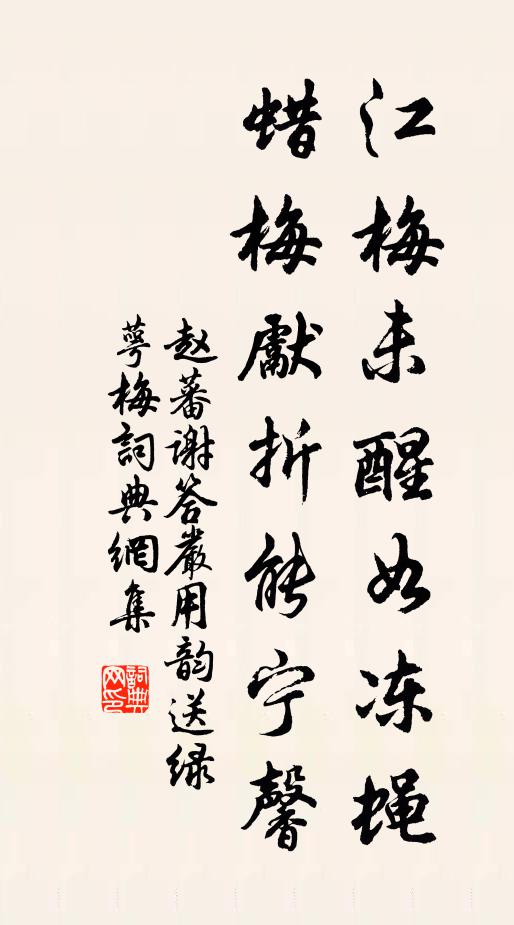 江梅未醒如冻蝇
蜡梅献折能宁馨
赵蕃谢答严用韵送绿
萼梅词典网集
词典网印